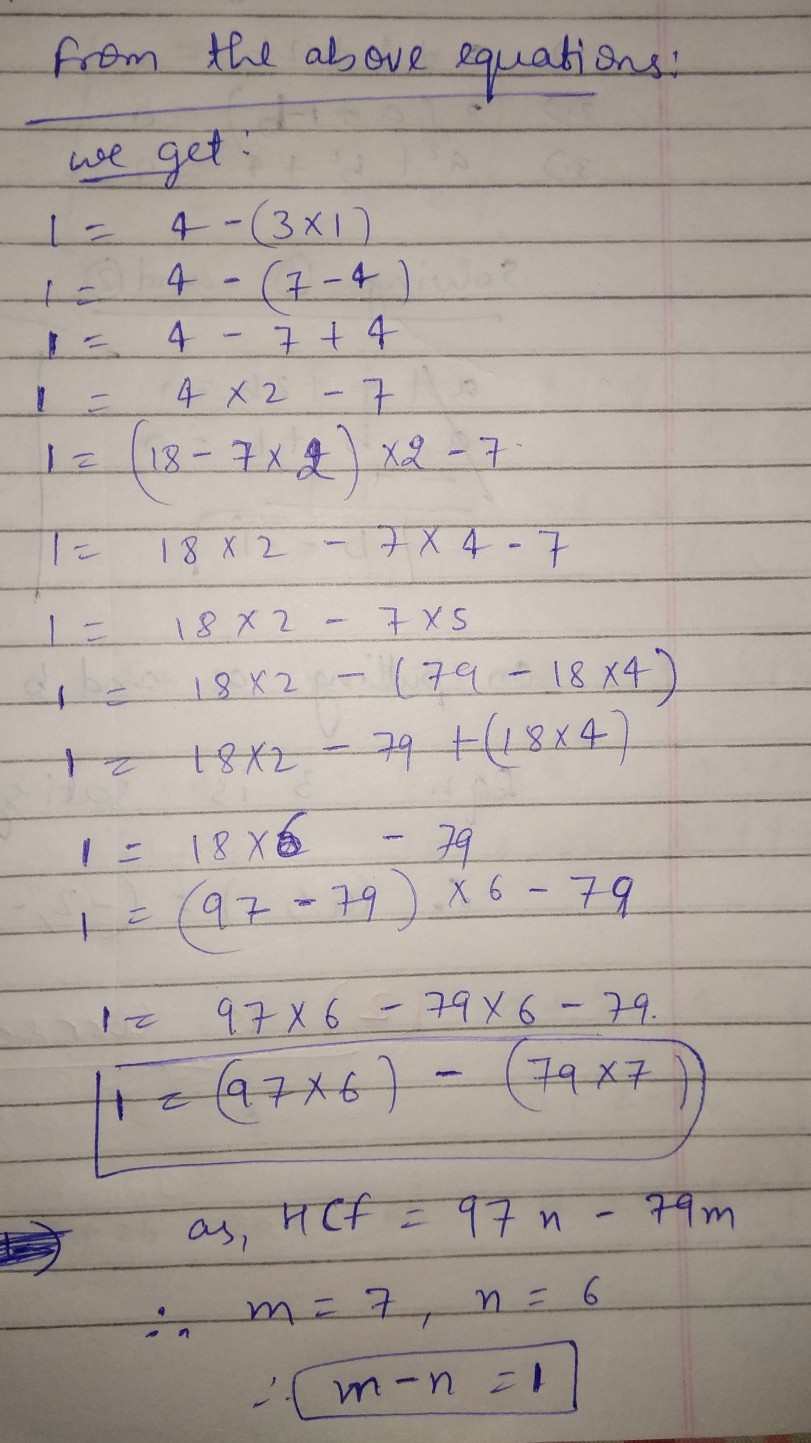 from the above equations:
we get:
1 = 4 - (3×1)
1 = 4 - (7-4)
1 = 4 - 7 + 4
1 = 4 × 2 - 7
1 = (18 - 7×2) ×2 - 7
1 = 18×2 - 7×4 - 7
1 = 18×2 - 7×5
1 = 18×2 - (79 - 18×4)
1 = 18×2 - 79 + (18×4)
1 = 18×6 - 79
1 = (97-79) ×6 - 79
1 = 97×6 - 79×6 - 79.
1 = (97×6) - (79×7)
as, HCf = 97n - 79m
∴ m = 7, n = 6
∴ m-n = 1